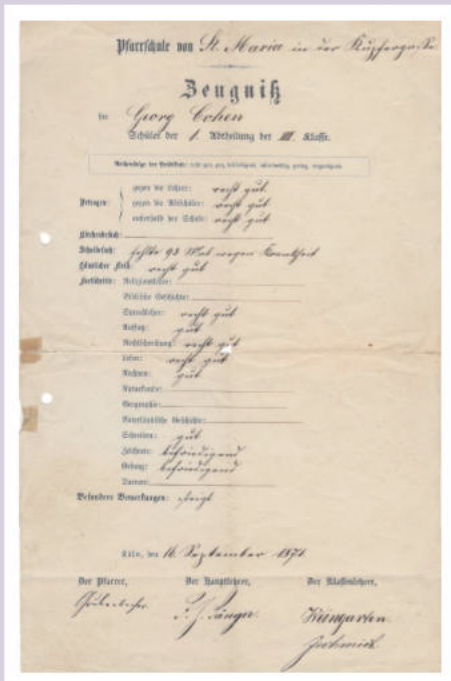 Pfarrschule von St. Maria in der Kupfergasse.
Zeugniß
Georg Cohen
Schüler der 1. Abtheilung der III. Klasse.
Reihenfolge der Prädikate: recht gut, gut, befriedigend,
gegen die Lehrer: recht gut.
Betragen: gegen die Mitschüler: recht gut
außerhalb der Schule: recht gut
Kirchenbesuch:
Schulbesuch: fehlte 98 Mal wegen Krankheit
Häuslicher Fleiß: recht gut
Fortschritte: Religionslehre:
Biblische Geschichte:
Sprachlehre: recht gut
Aufsatz: gut
Rechtschreibung: recht gut
Lesen: recht gut
Rechnen: gut
Naturkunde:
Geographie:
Vaterländische Geschichte:
Schreiben: gut
Zeichnen: befriedigend
Gesang: befriedigend
Turnen:
Besondere Bemerkungen: steigt
Köln, den 16. September 1871
Der Pfarrer, Der Hauptlehrer, Der Klassenlehrer,